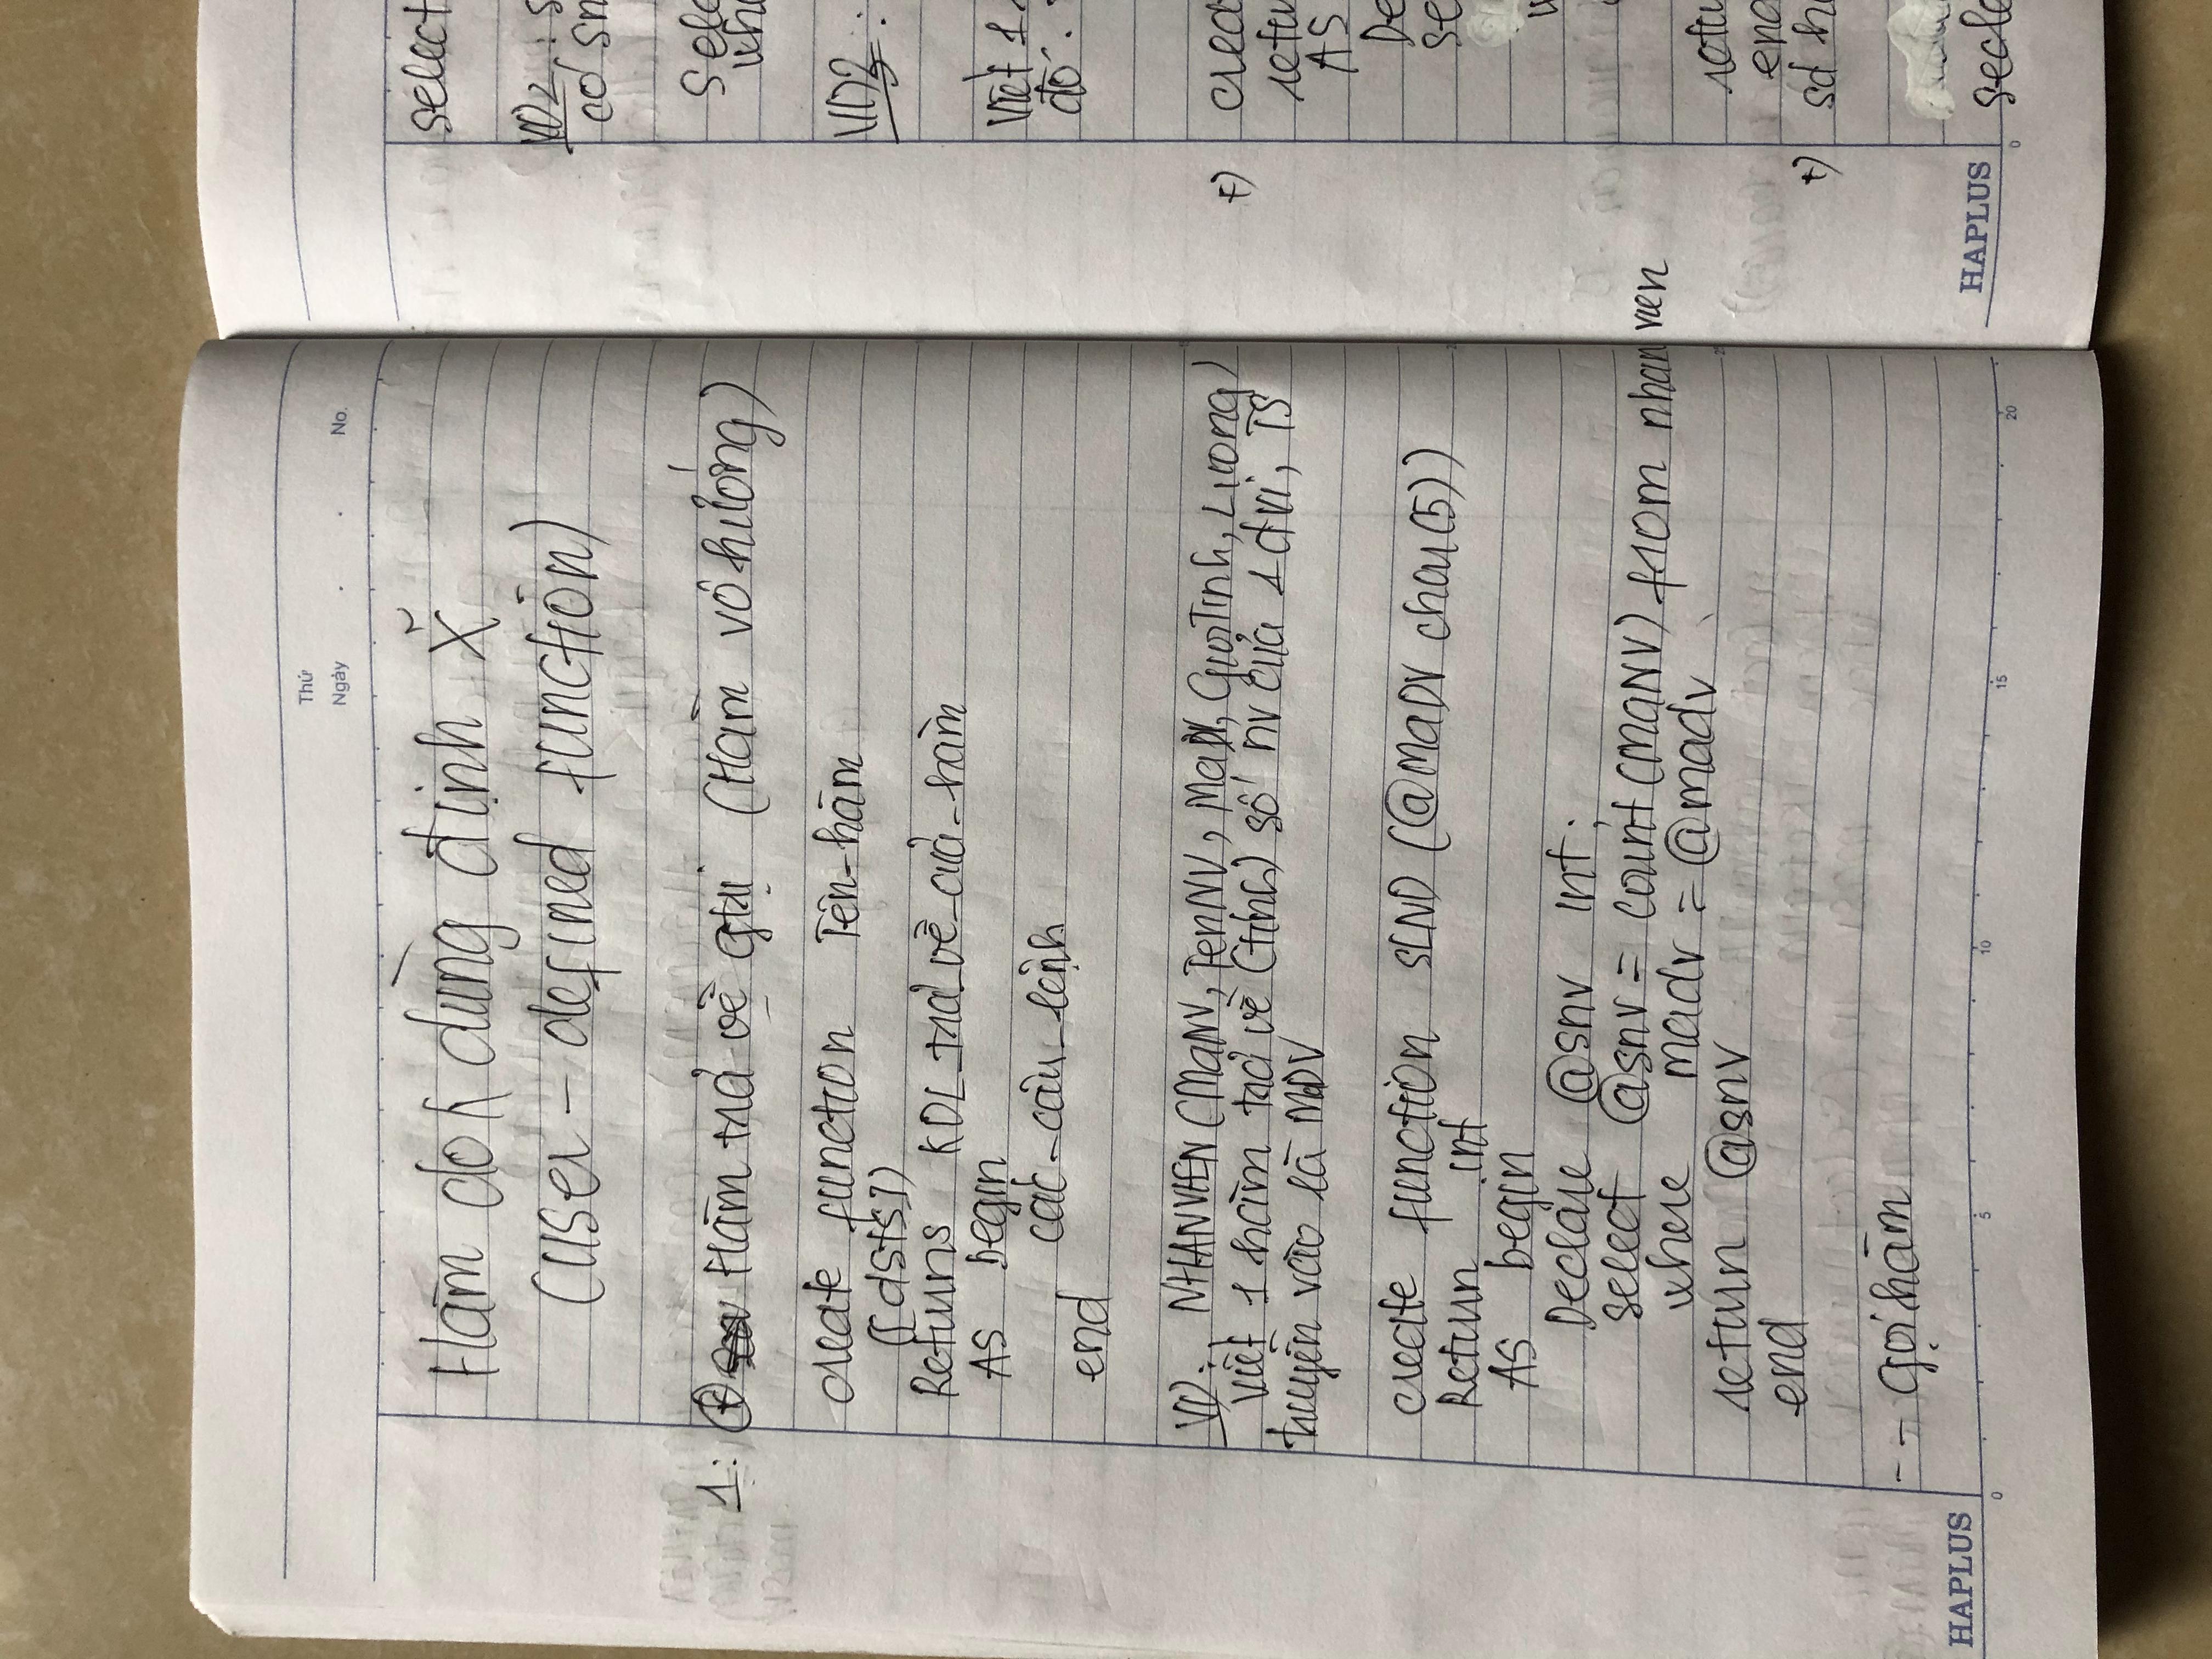 Thứ
Ngày . . No.
Hàm do  dùng định 
(user - defined function)
1: Hàm trả về gtrị (Hàm vô hướng)
create function Tên-hàm
([dsts])
Returns KDL_trả_về_của_hàm
AS begin
các_câu_lệnh
end
VD: NHANVIEN (MaNV, TenNV, MaDV, GioiTinh, Luong)
Viết 1 hàm trả về (tính) số nv của 1 đvi, TS
truyền vào là MaDV
create function SLND (@MaDV char(5))
Return int
AS begin
Declare @snv int;
select @snv = count (MaNV) from nhanvien
where madv = @madv
return @snv
end
-- Gọi hàm
HAPLUS
0 5 10 15 20
select
VD2 : s
có sn
VD3 :
Viết 1
đó.
+)
AS
+) sd
HAPLUS
0